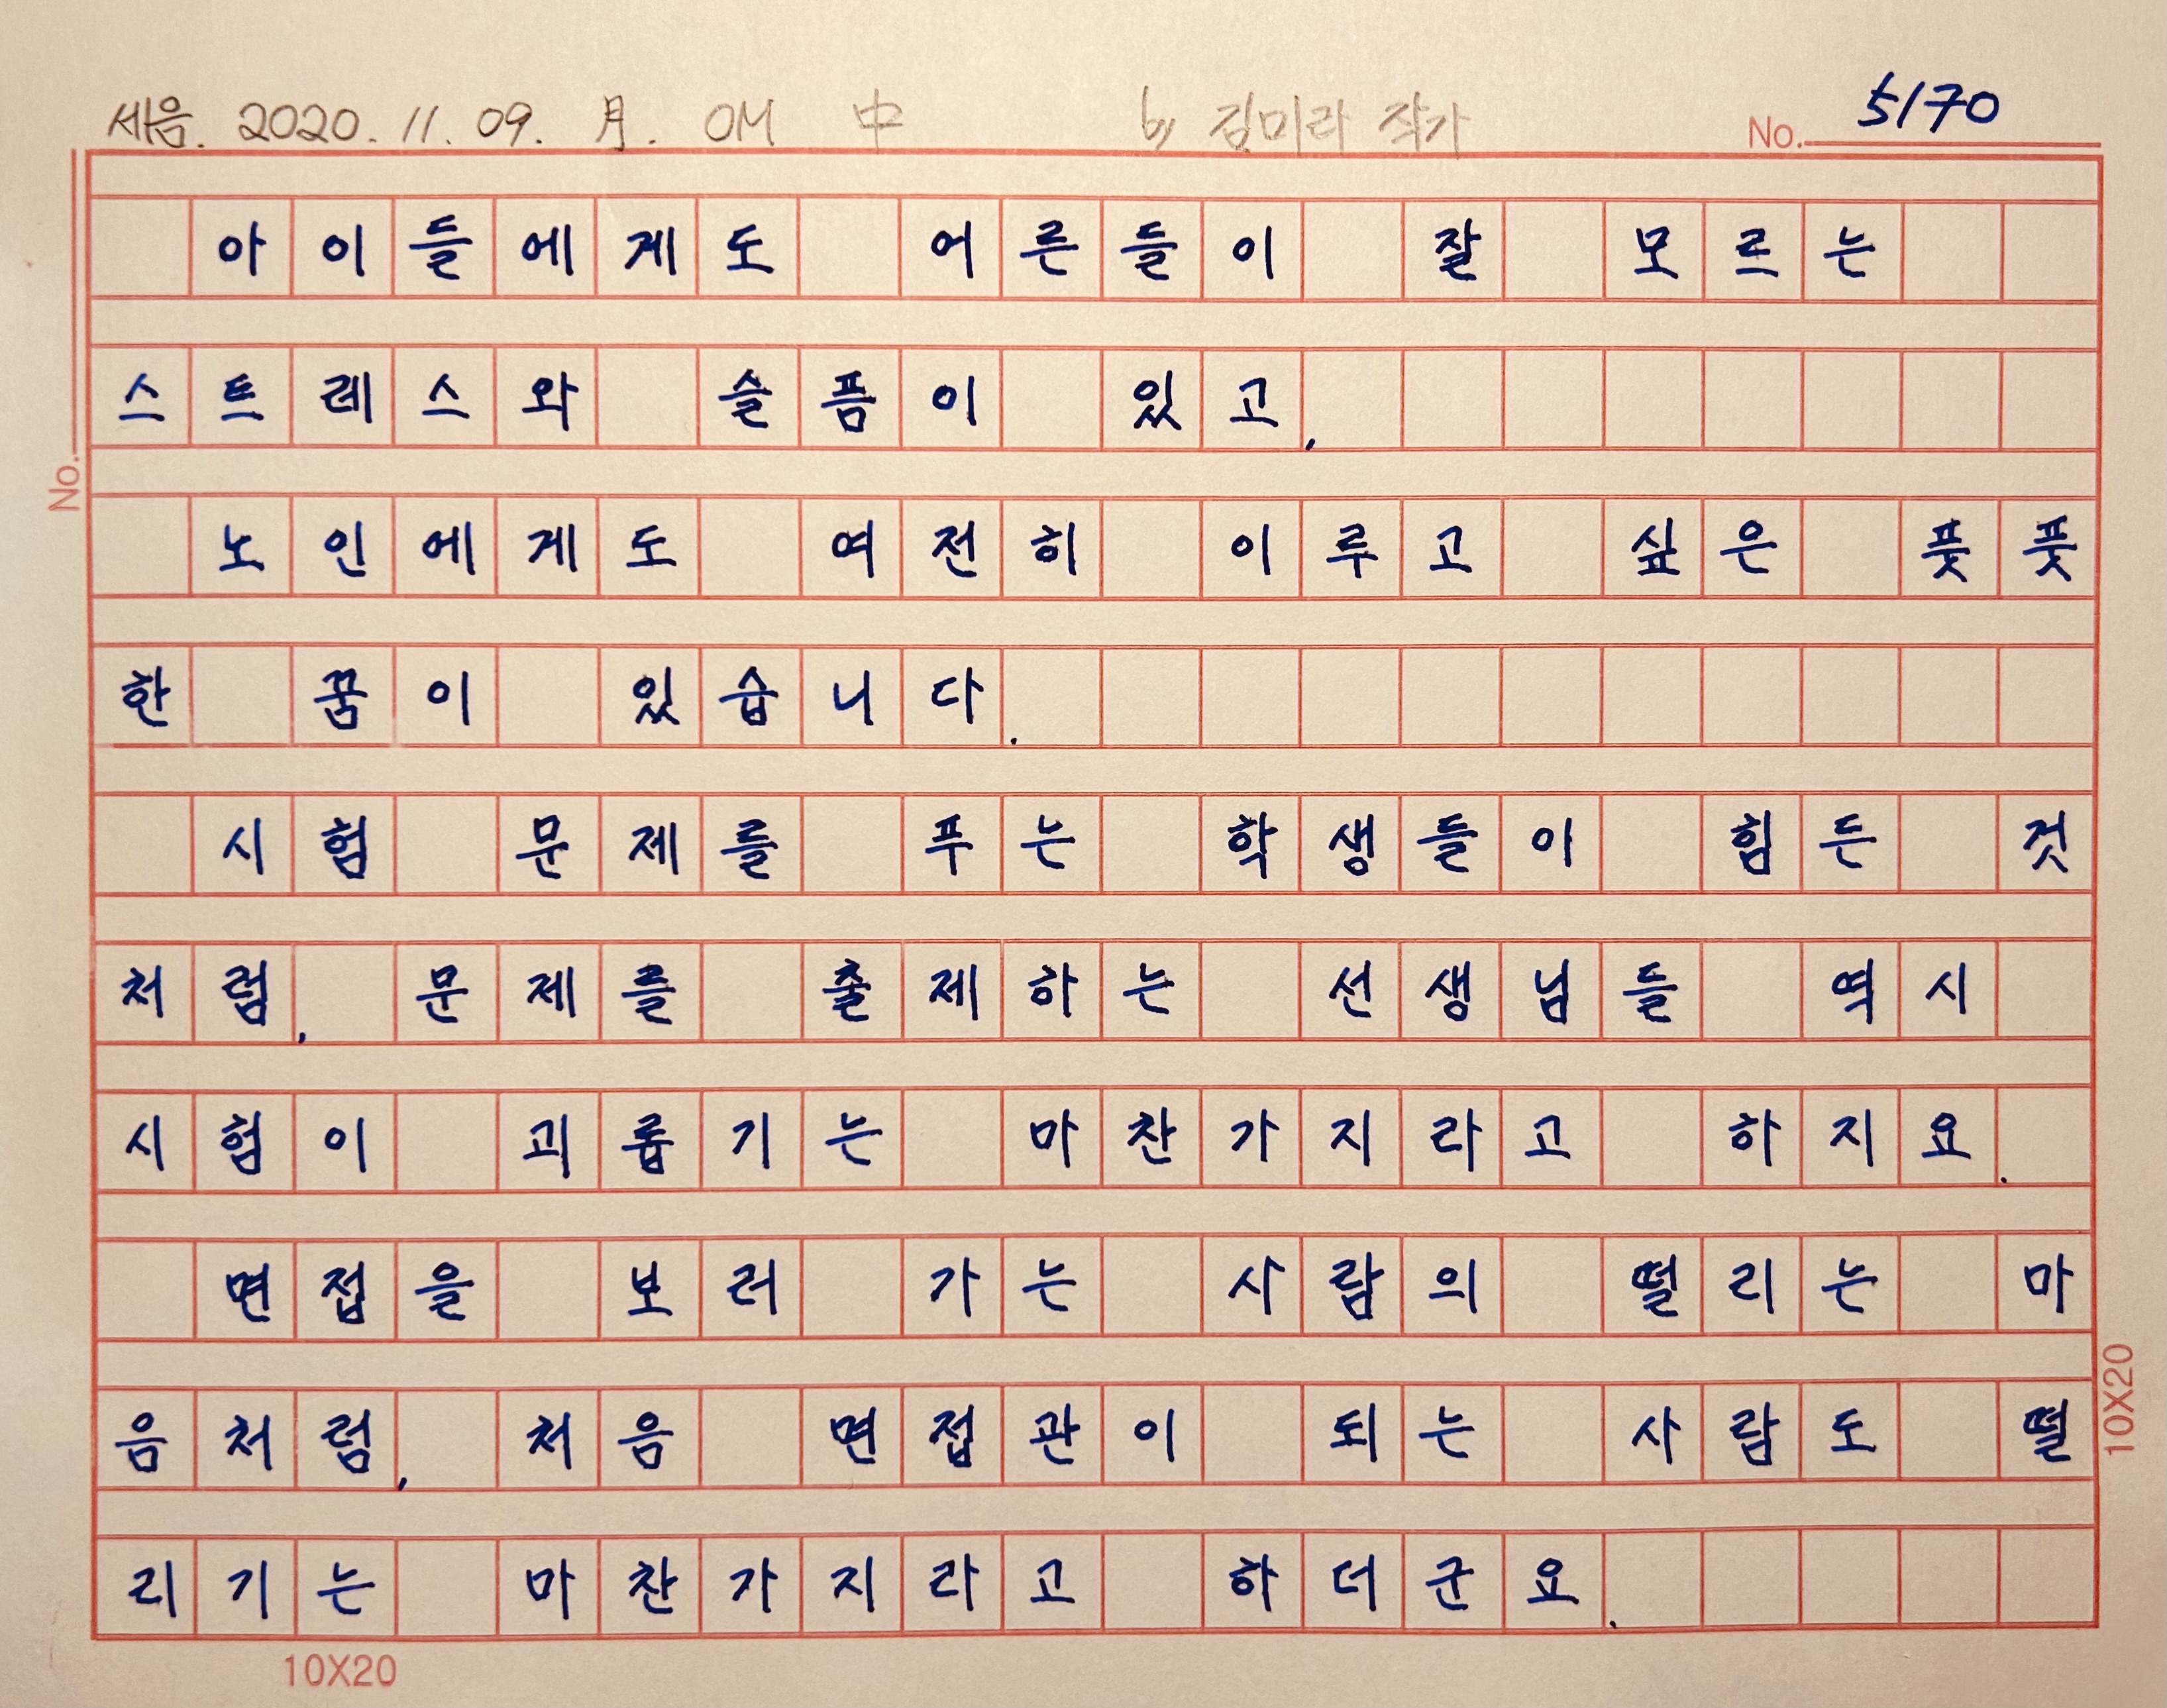 세음. 2020. 11. 09. 月. OM 中 by 김미라 작가
No. 5170
아이들에게도 어른들이 잘 모르는
스트레스와 슬픔이 있고,
노인에게도 여전히 이루고 싶은 풋풋
한 꿈이 있습니다.
시험 문제를 푸는 학생들이 힘든 것
처럼, 문제를 출제하는 선생님들 역시
시험이 괴롭기는 마찬가지라고 하지요.
면접을 보러 가는 사람의 떨리는 마
음처럼, 처음 면접관이 되는 사람도 떨
리기는 마찬가지라고 하더군요.
No.
10X20
10X20